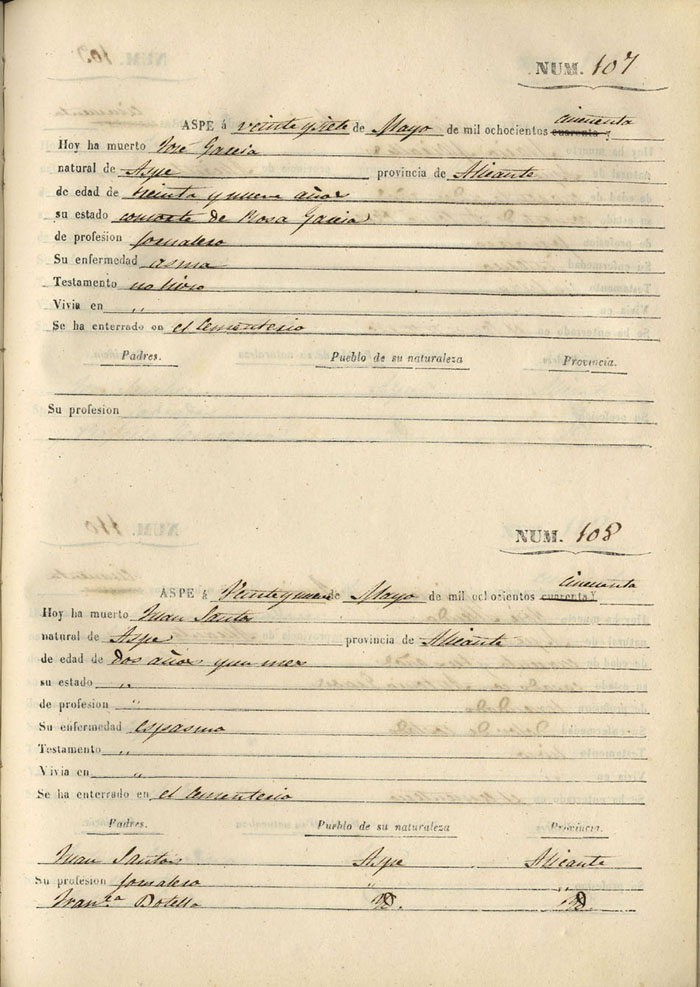 NUM. 107
cincuenta
ASPE á veinte y siete de Mayo de mil ochocientos cuarenta y
Hoy ha muerto José Garcia
natural de Aspe provincia de Alicante
de edad de treinta y nueve años
su estado consorte de Rosa Garcia
de profesion jornalero
Su enfermedad asma
Testamento no hizo
Vivia en "
Se ha enterrado en el Cementerio
Padres. Pueblo de su naturaleza Provincia.
Su profesion
NUM. 108
cincuenta
ASPE á Veinte y nueve de Mayo de mil ochocientos cuarenta y
Hoy ha muerto Juan Santos
natural de Aspe provincia de Alicante
de edad de dos años y un mes
su estado "
de profesion "
Su enfermedad espasmo
Testamento "
Vivia en "
Se ha enterrado en el Cementerio
Padres. Pueblo de su naturaleza Provincia.
Juan Santos Aspe Alicante
Su profesion jornalero " "
Fran.ca Botella